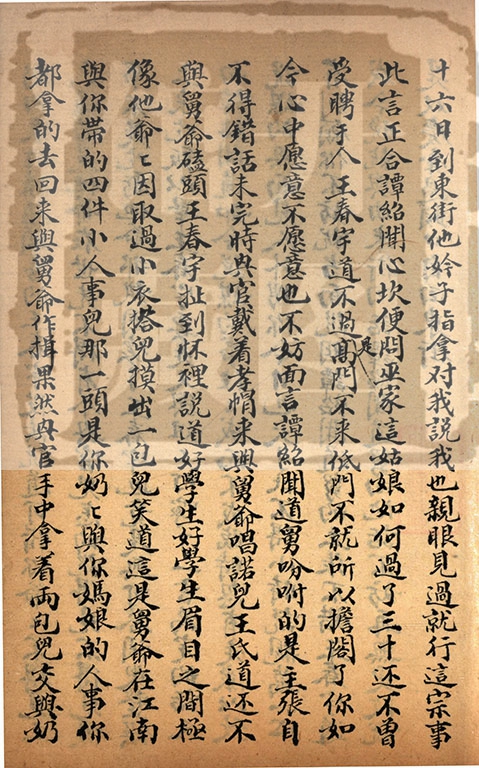 十六日到東街他妗子指拿对我説我也親眼見過就行這宗事
此言正合譚紹聞心坎便問巫家這姑娘如何過了三十还不曾
受聘于人王春宇道不過是高門不来低門不就所以擔閣了你如
今心中愿意不愿意也不妨面言譚紹聞道舅吩咐的是主張自
不得錯話未完時興官戴着孝帽来與舅爺唱諾兒王氏道还不
與舅爺磕頭王春宇扯到怀裡説道好學生好學生眉目之間極
像他爺〻因取過小衣搭兒摸出一包兒笑道這是舅爺在江南
與你帶的四件小人事兒那一頭是你奶〻與你媽娘的人事你
都拿的去回来與舅爺作揖果然興官手中拿着兩包兒交與奶